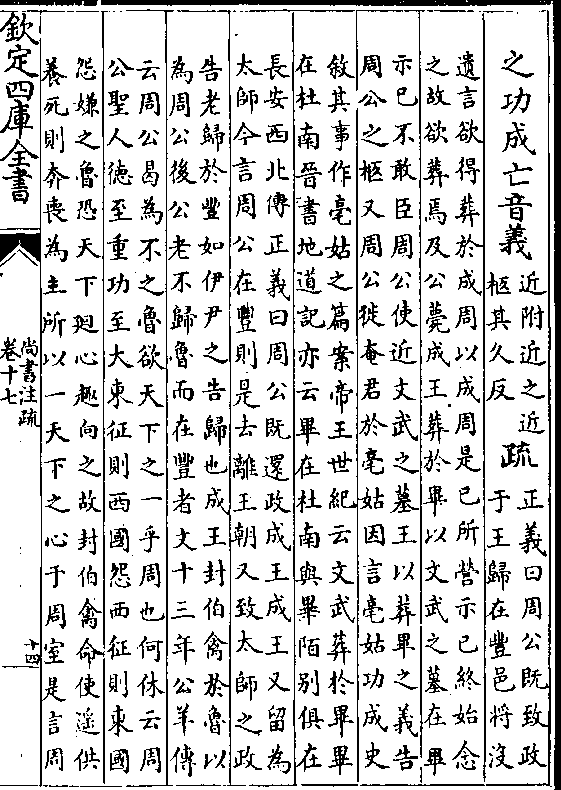 之功成亡音義
近附近之近
柩其久反
疏
正義曰周公既致政
于王歸在豐邑將沒
遺言欲得葬於成周以成周是已所營示已終始念
之故欲葬焉及公薨成王葬於畢以文武之墓在畢
示已不敢臣周公使近文武之墓王以葬畢之義告
周公之柩又周公徙奄君於亳姑因言亳姑功成史
敘其事作亳姑之篇案帝王世紀云文武葬於畢畢
在杜南晉書地道記亦云畢在杜南與畢陌別俱在
長安西北傳正義曰周公既還政成王成王又留為
太師今言周公在豐則是去離王朝又致太師之政
告老歸於豐如伊尹之告歸也成王封伯禽於魯以
為周公後公老不歸魯而在豐者文十三年公羊傳
云周公曷為不之魯欲天下之一乎周也何休云周
公聖人德至重功至大東征則西國怨西征則東國
怨嫌之魯恐天下廻心趣向之故封伯禽命使遥供
養死則奔喪為主所以一天下之心于周室是言周
欽定四庫全書
尚書注疏
卷十七
十四